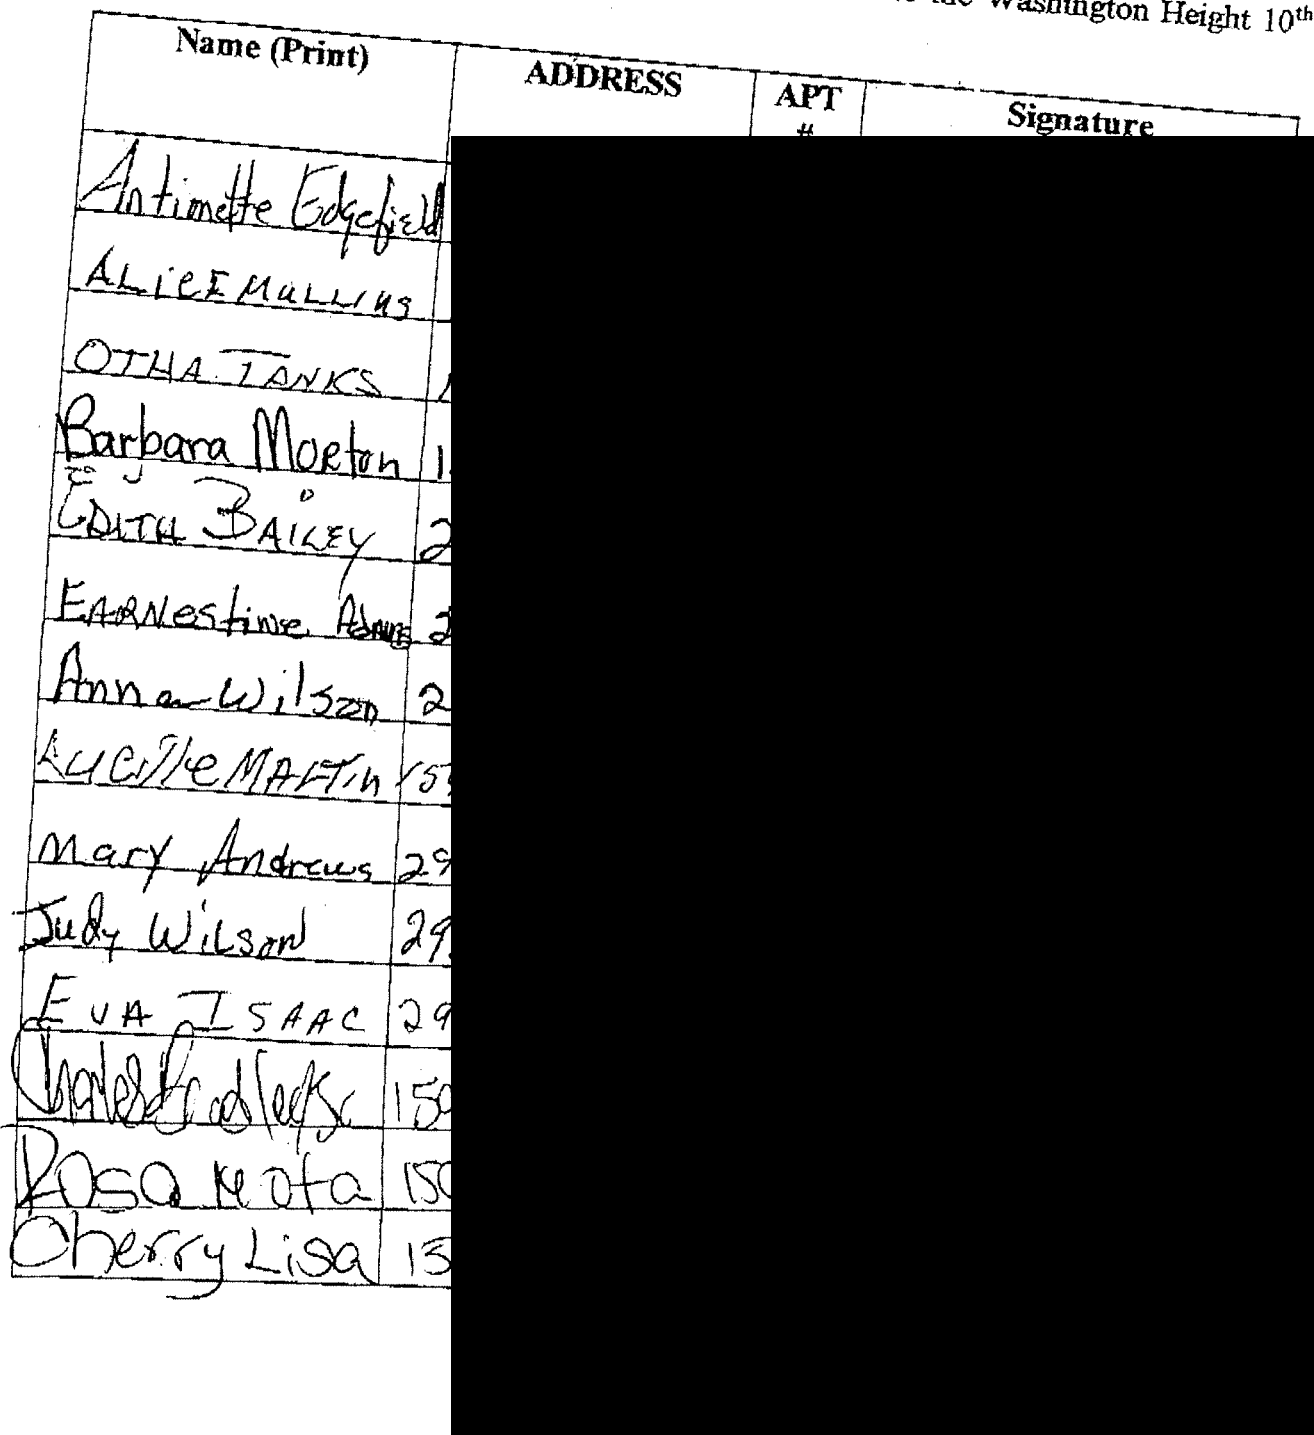 Washington Height 10th
Name (Print) ADDRESS APT # Signature
Antimette Edgefield
ALICE MULLINS
OTHA TANKS
Barbara Morton 1
EDITH BAILEY 2
EARNestine Adams 2
Anna Wilson 2
Lucille MARTin 15
Mary Andrews 29
Judy Wilson 29
EVA ISAAC 29
Charles 150
Rosa Mota 150
Cherry Lisa 15